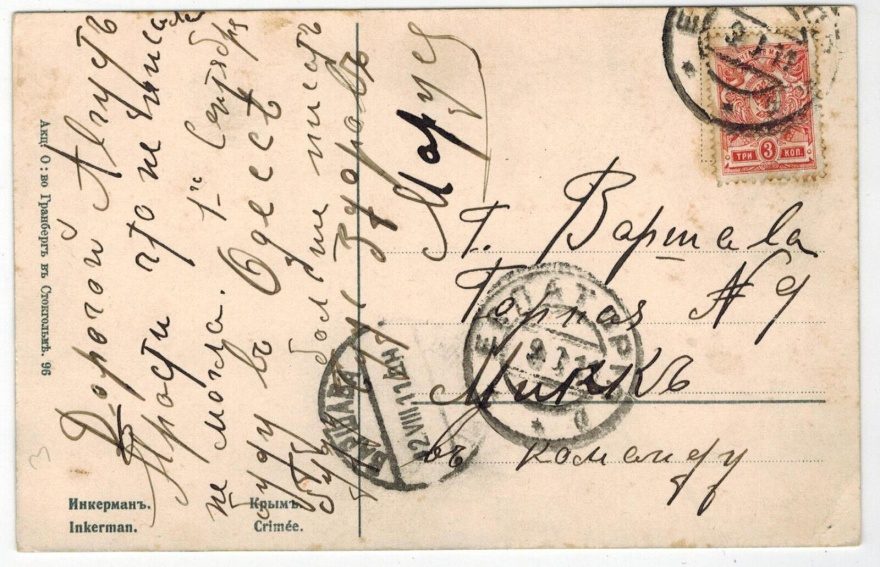 Дорогой Август
Прости что не писала
не могла. 1го Сентября
буду въ Одессѣ
больше писать
Будь здоровъ
Маруся
Г. Варшава
Горная № 9
въ команду
ТРИ 3 КОП.
ЕВПАТОРІЯ
ВАРШАВА
22.VIII.11
Инкерманъ. Крымъ.
Inkerman. Crimée.
Акц: О: во Гранбергъ въ Стокгольмѣ. 96
3